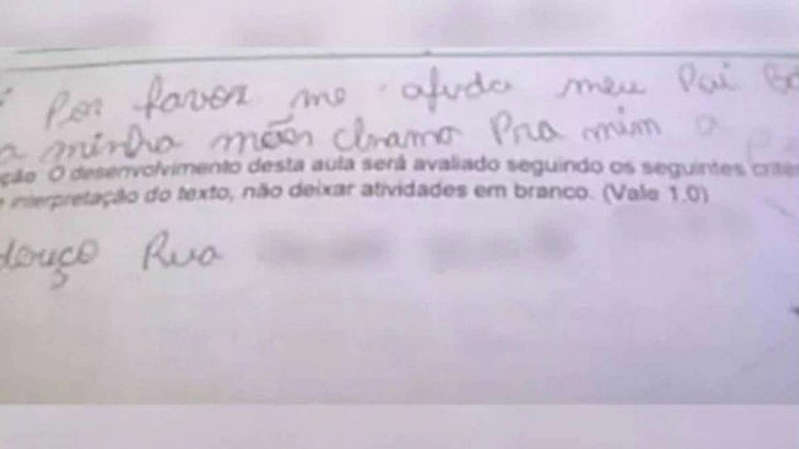 Por favor me ajuda meu Pai
a minha mãe chama Pra mim a
ção O desenvolvimento desta aula será avaliado seguindo os seguintes crité
e interpretação do texto, não deixar atividades em branco. (Vale 1.0)
Rua